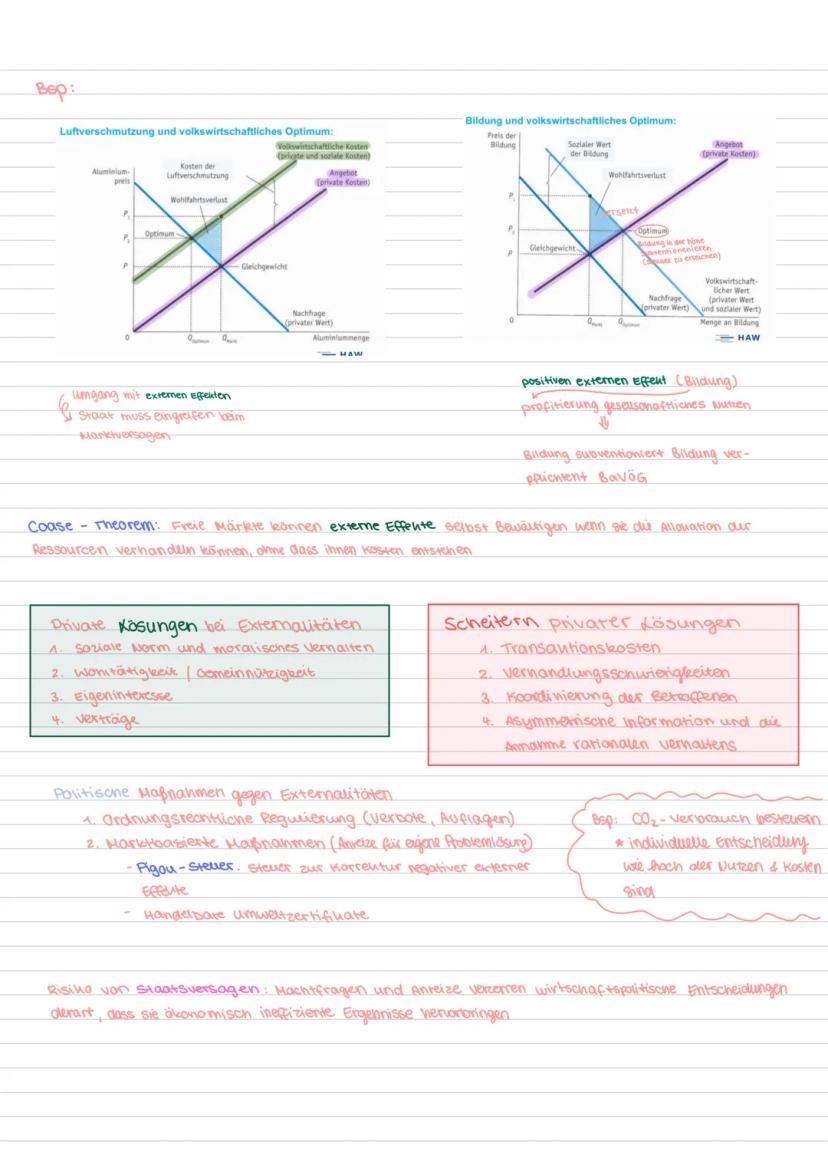 Bsp:
Luftverschmutzung und volkswirtschaftliches Optimum:
Volkswirtschaftliche Kosten
(private und soziale Kosten)
Kosten der
Luftverschmutzung
Angebot
(private Kosten)
Aluminium-
preis
Wohlfahrtsverlust
P₁
Optimum
P₂
P
Gleichgewicht
Nachfrage
(privater Wert)
0
Q Optimum
Q Markt
Aluminiummenge
HAW
Bildung und volkswirtschaftliches Optimum:
Preis der
Bildung
Sozialer Wert
der Bildung
Angebot
(private Kosten)
Wohlfahrtsverlust
P₁
ersetzt
P₂
Optimum
Bildung in der Höhe
subventionieren
Gleichgewicht
P
Volkswirtschaft-
licher Wert
(privater Wert
und sozialer Wert)
Nachfrage
(privater Wert)
0
Q Markt
Q Optimum
Menge an Bildung
HAW
Umgang mit externen Effekten
Staat muss eingreifen beim
Marktversagen
positiven externen Effekt (Bildung)
profitierung gesellschaftliches Nutzen
Bildung subventioniert Bildung ver-
pflichtent BaVöG
Coase - Theorem: Freie Märkte können externe Effekte selbst Bewältigen wenn sie die Allokation der
Ressourcen verhandeln können, ohne dass ihnen Kosten entstehen
Private Lösungen bei Externalitäten
1. Soziale Norm und moralisches Verhalten
2. Wohltätigkeit / Gemeinnützigkeit
3. Eigeninteresse
4. Verträge
Scheitern privater Lösungen
1. Transaktionskosten
2. Verhandlungsschwierigkeiten
3. Koordinierung der Betroffenen
4. Asymmetrische Information und die
Annahme rationalen verhaltens
Politische Maßnahmen gegen Externalitäten
1. Ordnungsrechtliche Regulierung (Verbote, Auflagen)
2. Marktbasierte Maßnahmen (Anreize für eigene Problemlösung)
- Pigou-Steuer. Steuer zur Korrektur negativer externer
Effekte
- Handelbare Umweltzertifikate
Bsp: CO₂-Verbrauch besteuern
* individuelle Entscheidung
wie hoch der Nutzen & Kosten
sind
Risiko von Staatsversagen: Machtfragen und Anreize verzerren wirtschaftspolitische Entscheidungen
derart, dass sie ökonomisch ineffiziente Ergebnisse hervorbringen